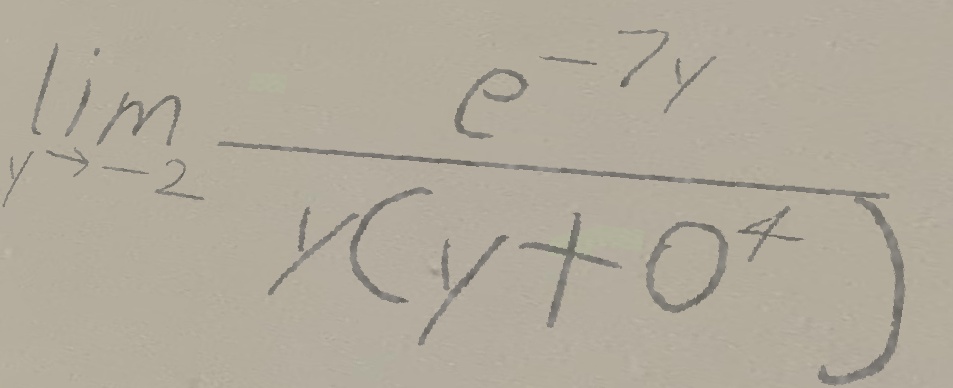 lim y→-2 e^{-7y} / y(y+0^4)